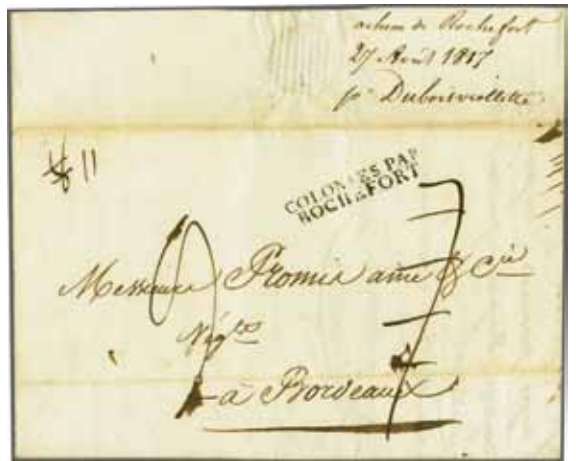 de Rochefort
27 Avril 1817
pr Duboisviollette
11
COLONIES PAR
ROCHEFORT
Messieurs Promis ainé & Cie
Négts
à Bordeaux